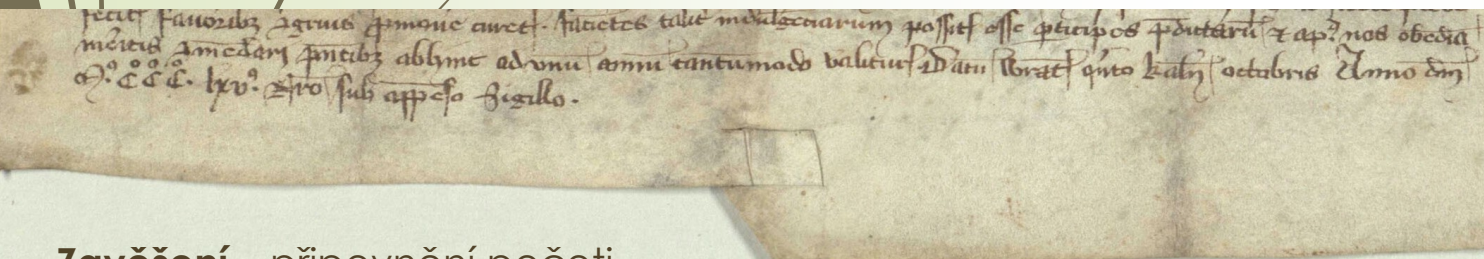 fauoribꝫ ꝯgruis ꝓmoue curet. facietes talit indulgeciarum possitꝭ esse ꝑticipes p̄dictarū ⁊ apꝰ nos obedia
meritis ꝯmedari p̄ntibꝫ abhinc ad vnū annū tantūmodo valitur Datū Wratꝭ qͥnto kaln̄ octobris Anno dn̄i
Mͦ. Cͦ Cͦ Cͦ. lxvͦ. nr̄o sub app̄eso Sigillo.
Zavěšení připevnění pečeti